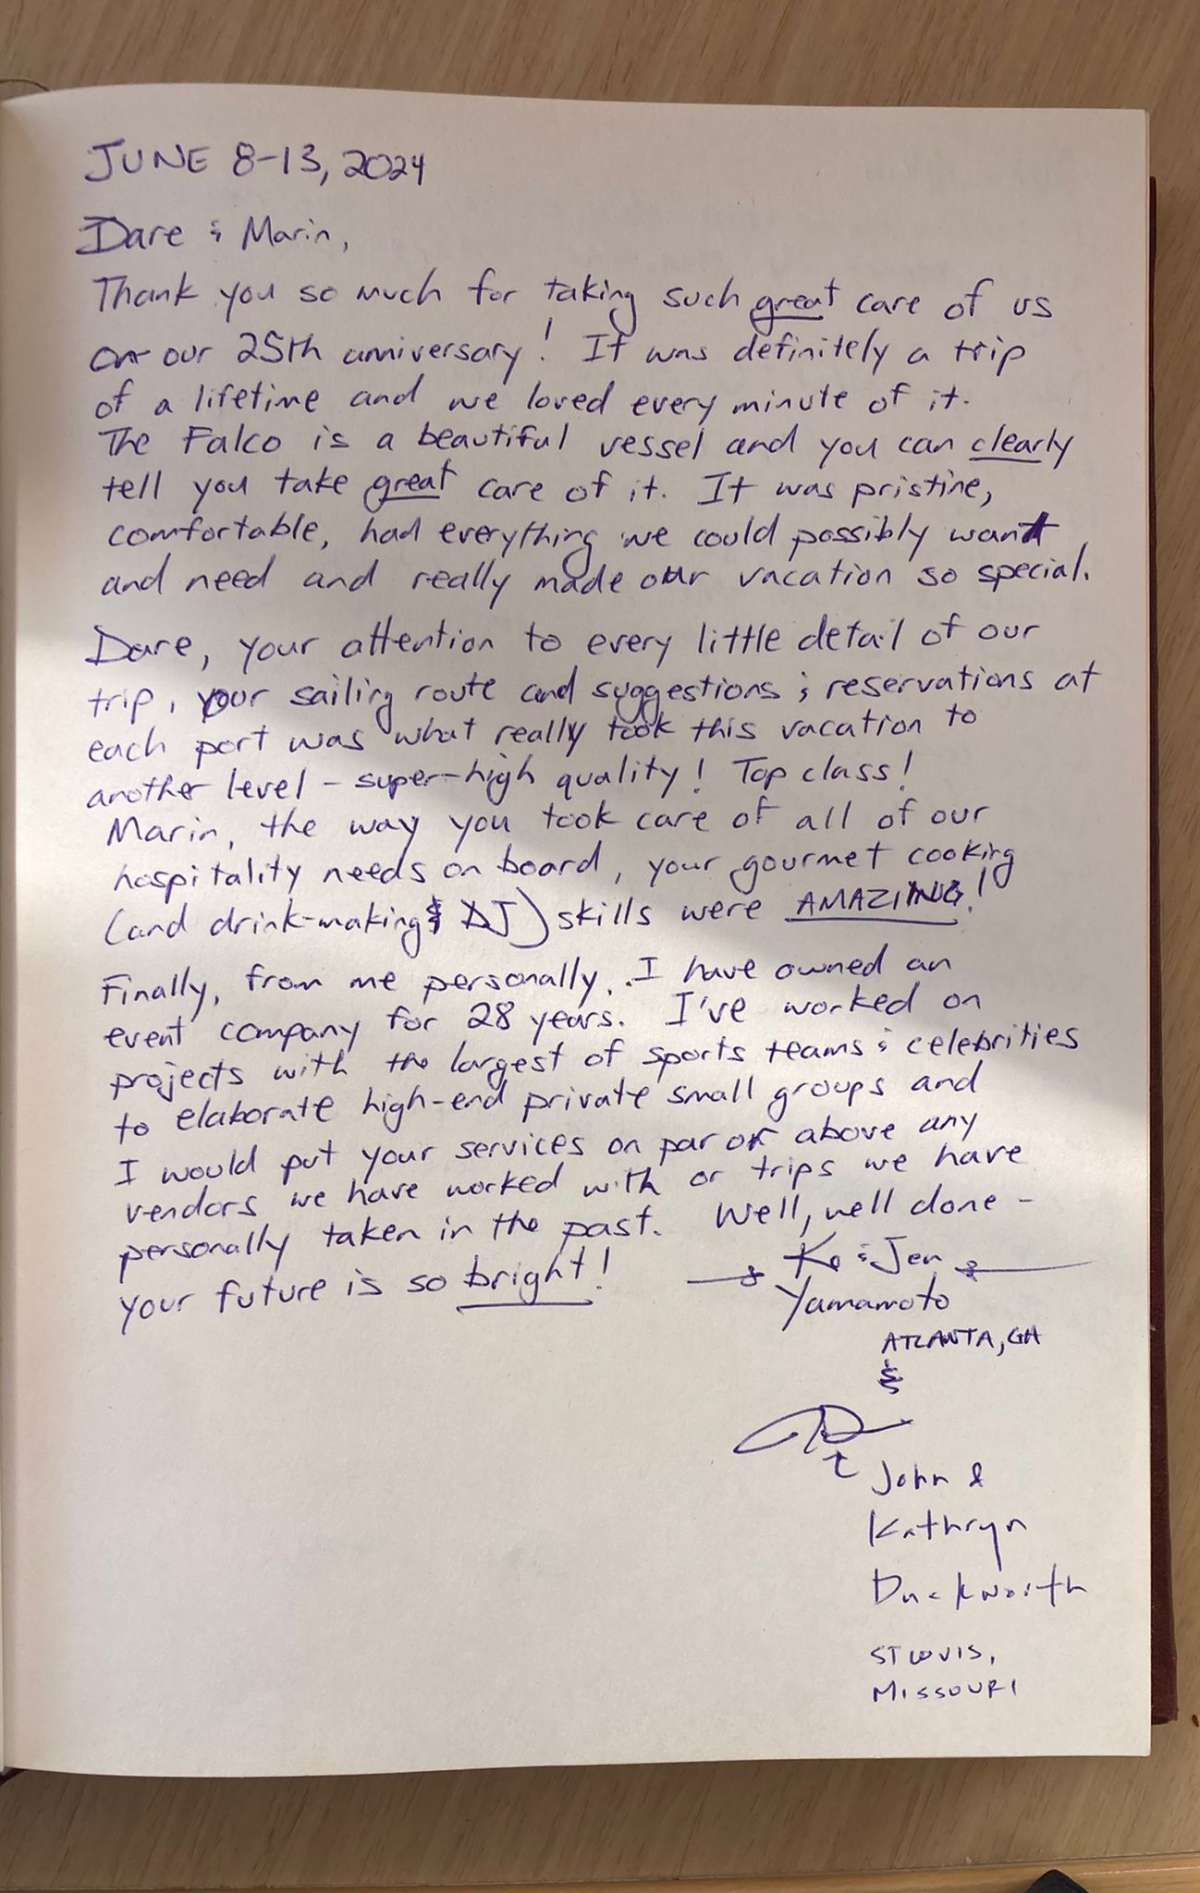 JUNE 8-13, 2024
Dare & Marin,
Thank you so much for taking such great care of us
on our 25th anniversary! It was definitely a trip
of a lifetime and we loved every minute of it.
The Falco is a beautiful vessel and you can clearly
tell you take great care of it. It was pristine,
comfortable, had everything we could possibly want
and need and really made our vacation so special.
Dare, your attention to every little detail of our
trip, your sailing route and suggestions & reservations at
each port was what really took this vacation to
another level - super-high quality! Top class!
Marin, the way you took care of all of our
hospitality needs on board, your gourmet cooking
(and drink-making & DJ) skills were AMAZING!
Finally, from me personally... I have owned an
event company for 28 years. I've worked on
projects with the largest of sports teams & celebrities
to elaborate high-end private small groups and
I would put your services on par or above any
vendors we have worked with or trips we have
personally taken in the past. Well, well done -
your future is so bright!
Ko & Jen
Yamamoto
ATLANTA, GA
&
John &
Kathryn
Duckworth
ST LOUIS,
MISSOURI